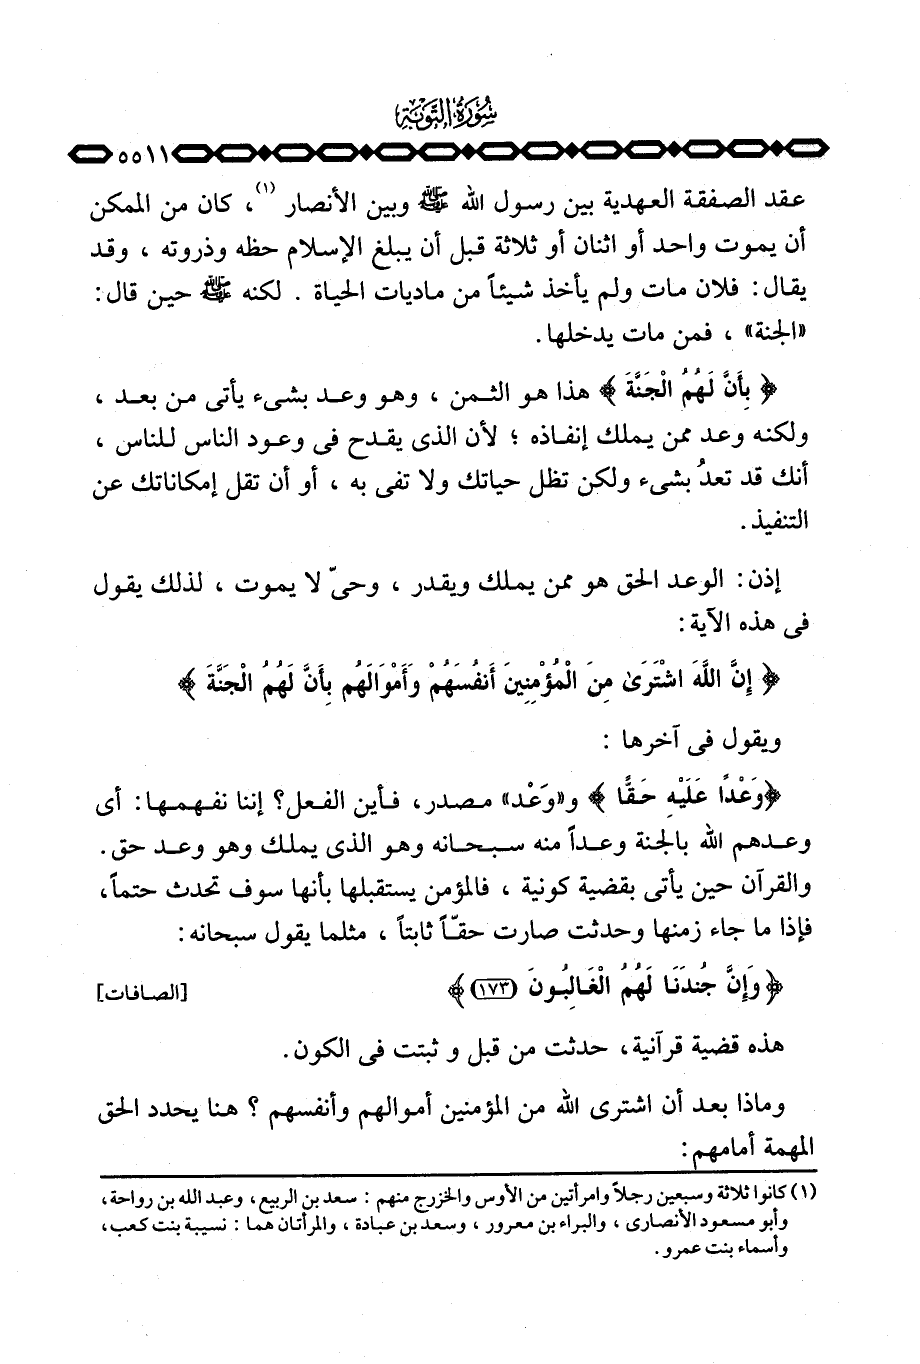 سُورَةُ التَّوْبَةِ
٥٥١١
عقد الصفقة العهدية بين رسول الله ﷺ وبين الأنصار (١)، كان من الممكن
أن يموت واحد أو اثنان أو ثلاثة قبل أن يبلغ الإسلام حظه وذروته ، وقد
يقال: فلان مات ولم يأخذ شيئاً من ماديات الحياة . لكنه ﷺ حين قال:
«الجنة» ، فمن مات يدخلها.
﴿ بِأَنَّ لَهُمُ الْجَنَّةَ ﴾ هذا هو الثمن ، وهو وعد بشىء يأتى من بعد ،
ولكنه وعد ممن يملك إنفاذه ؛ لأن الذى يقدح فى وعود الناس للناس ،
أنك قد تعدُ بشىء ولكن تظل حياتك ولا تفى به ، أو أن تقل إمكاناتك عن
التنفيذ.
إذن: الوعد الحق هو ممن يملك ويقدر ، وحىّ لا يموت ، لذلك يقول
فى هذه الآية:
﴿ إِنَّ اللَّهَ اشْتَرَىٰ مِنَ الْمُؤْمِنِينَ أَنفُسَهُمْ وَأَمْوَالَهُم بِأَنَّ لَهُمُ الْجَنَّةَ ﴾
ويقول فى آخرها :
﴿وَعْدًا عَلَيْهِ حَقًّا ﴾ و«وَعْد» مصدر، فأين الفعل؟ إننا نفهمها: أى
وعدهم الله بالجنة وعداً منه سبحانه وهو الذى يملك وهو وعد حق.
والقرآن حين يأتى بقضية كونية ، فالمؤمن يستقبلها بأنها سوف تحدث حتماً،
فإذا ما جاء زمنها وحدثت صارت حقّاً ثابتاً ، مثلما يقول سبحانه:
﴿وَإِنَّ جُندَنَا لَهُمُ الْغَالِبُونَ (١٧٣)﴾ [الصافات]
هذه قضية قرآنية، حدثت من قبل و ثبتت فى الكون.
وماذا بعد أن اشترى الله من المؤمنين أموالهم وأنفسهم ؟ هنا يحدد الحق
المهمة أمامهم:
(١) كانوا ثلاثة وسبعين رجلاً وامرأتين من الأوس والخزرج منهم : سعد بن الربيع، وعبد الله بن رواحة،
وأبو مسعود الأنصارى ، والبراء بن معرور ، وسعد بن عبادة ، والمرأتان هما : نسيبة بنت كعب،
وأسماء بنت عمرو.